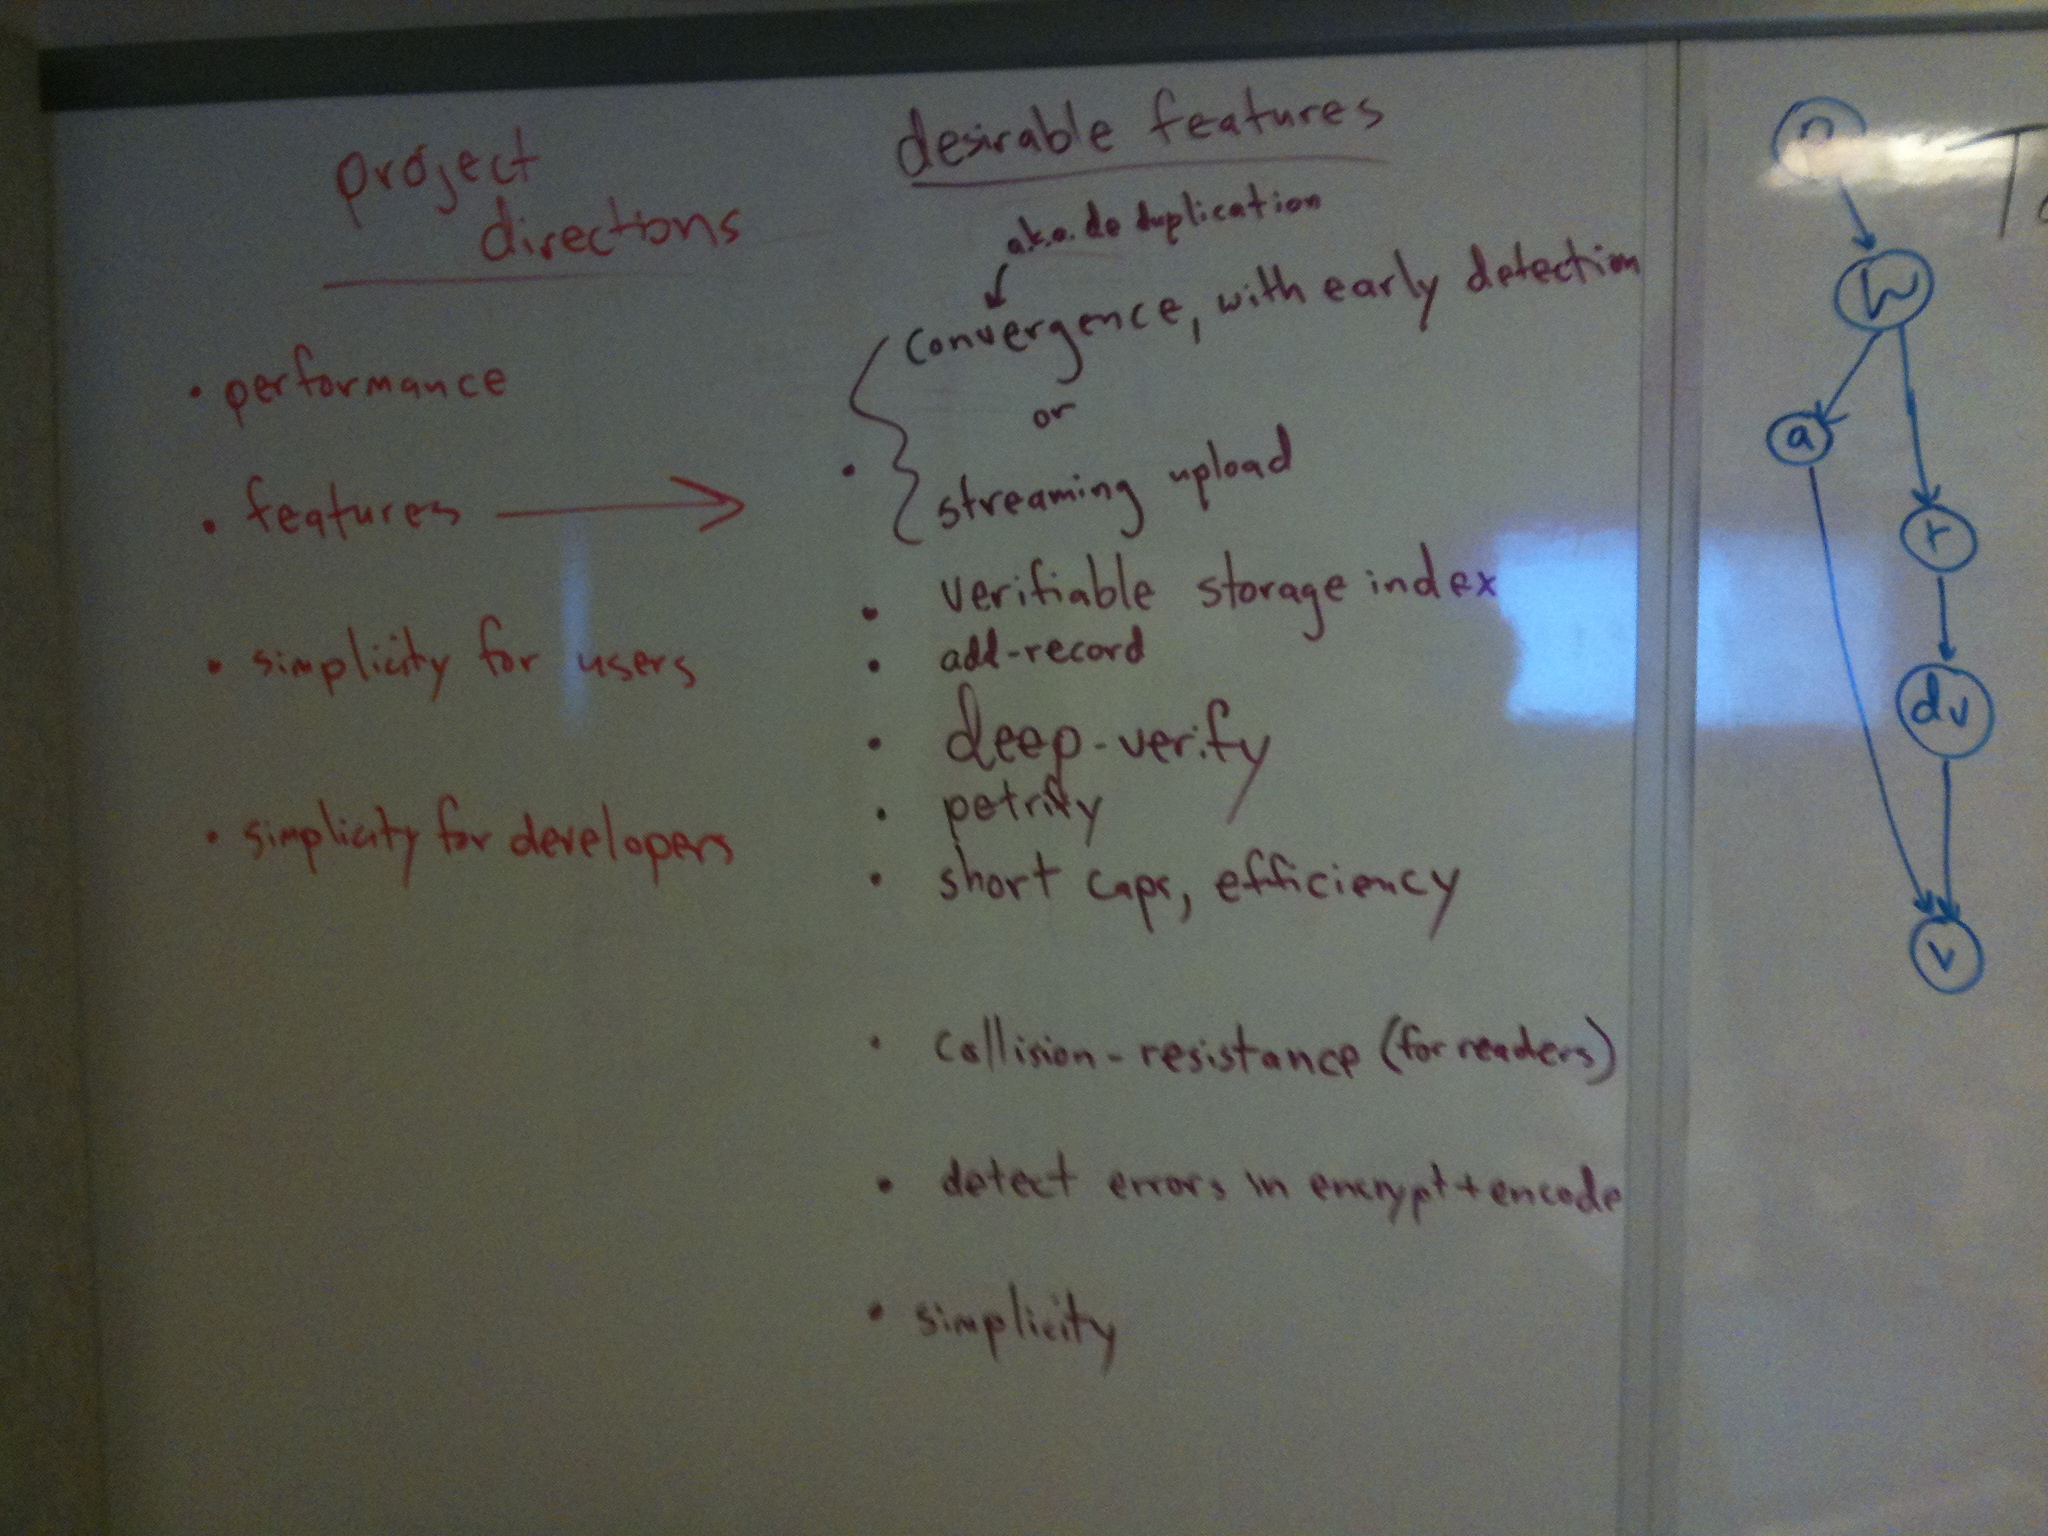 project
directions
• performance
• features
• simplicity for users
• simplicity for developers
desirable features
a.k.a. de duplication
convergence, with early detection
or
• streaming upload
• verifiable storage index
• add-record
• deep-verify
• petrify
• short caps, efficiency
• collision-resistance (for readers)
• detect errors in encrypt+encode
• simplicity
a
r
dv
v